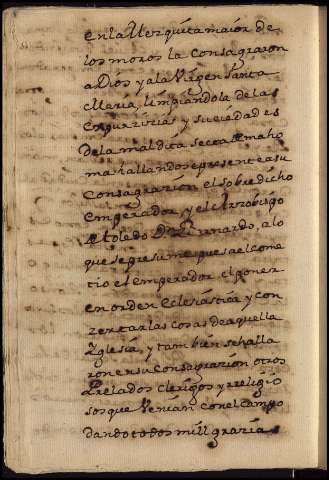 en la Mezquita maior de
los moros la Consagraron
a Dios y a la Virgen Santa
Maria, limpiandola de las
espurzizias y suciedades
de la maldita secta de maho
ma hallandose presente a su
Consagrazion el sobredicho
Emperador, y el Arzobispo
de toledo Dn Bernardo, a lo
que se presume pues a el come
tio el Emperador el poner
en orden Eclesiastica y con
zertar las cosas de aquella
Yglesia, y tambien se halla
ron en su Consagrazion otros
Prelados clerigos y religio
sos que Venian con el campo
dando todos mill grazias